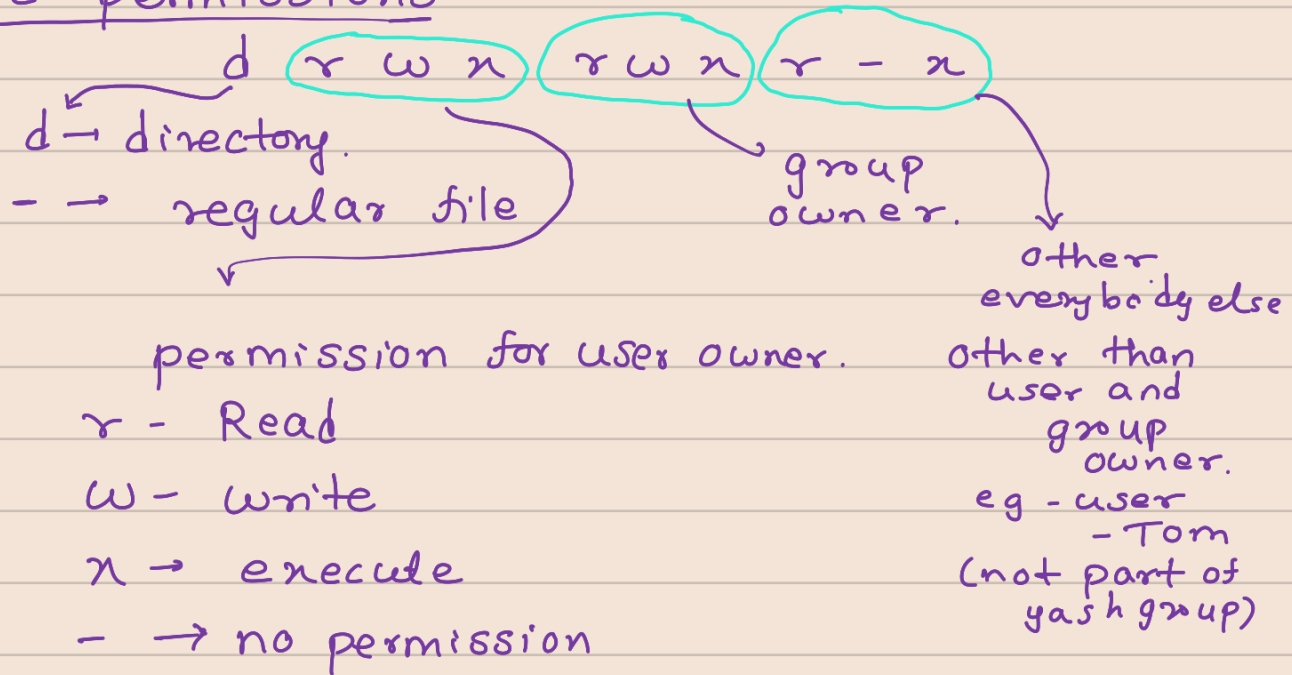 permissions
d rwx rwx r-x
d → directory.
- → regular file
group
owner.
other
everybody else
other than
user and
group
owner.
eg - user
- Tom
(not part of
yash group)
permission for user owner.
r - Read
w - write
x → execute
- → no permission